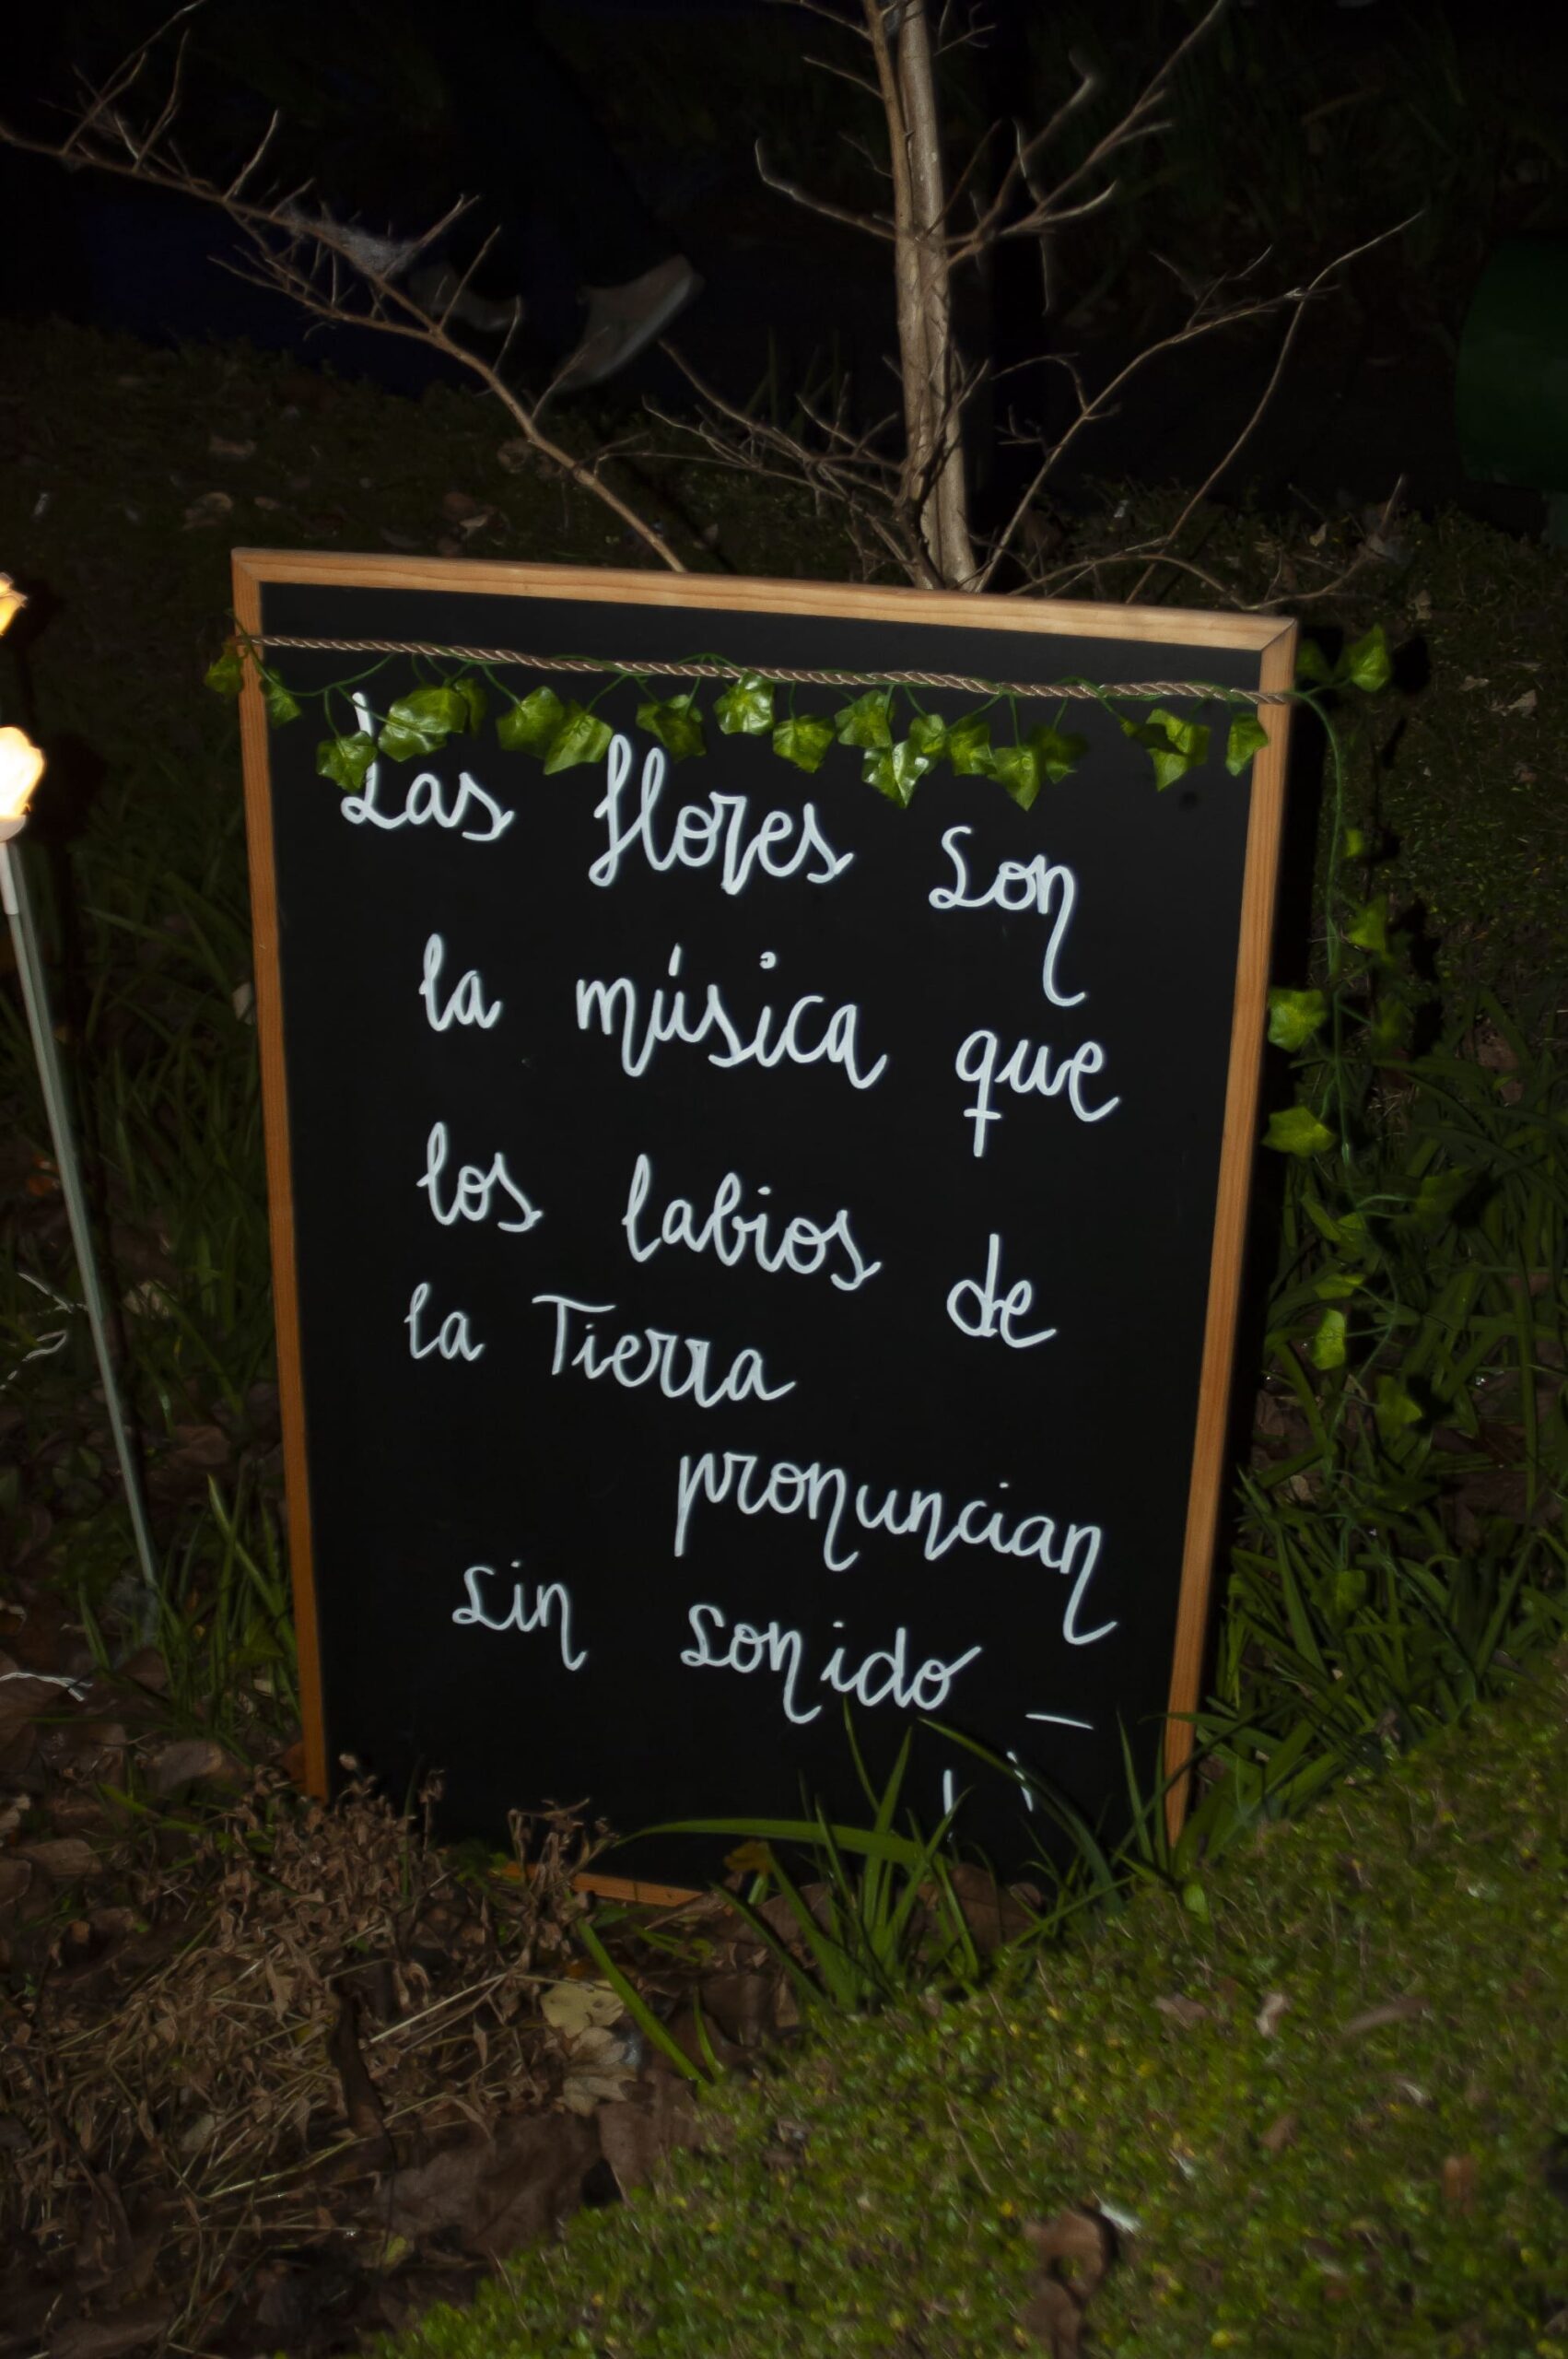 Las flores son
la música que
los labios de
la Tierra
pronuncian
sin sonido _